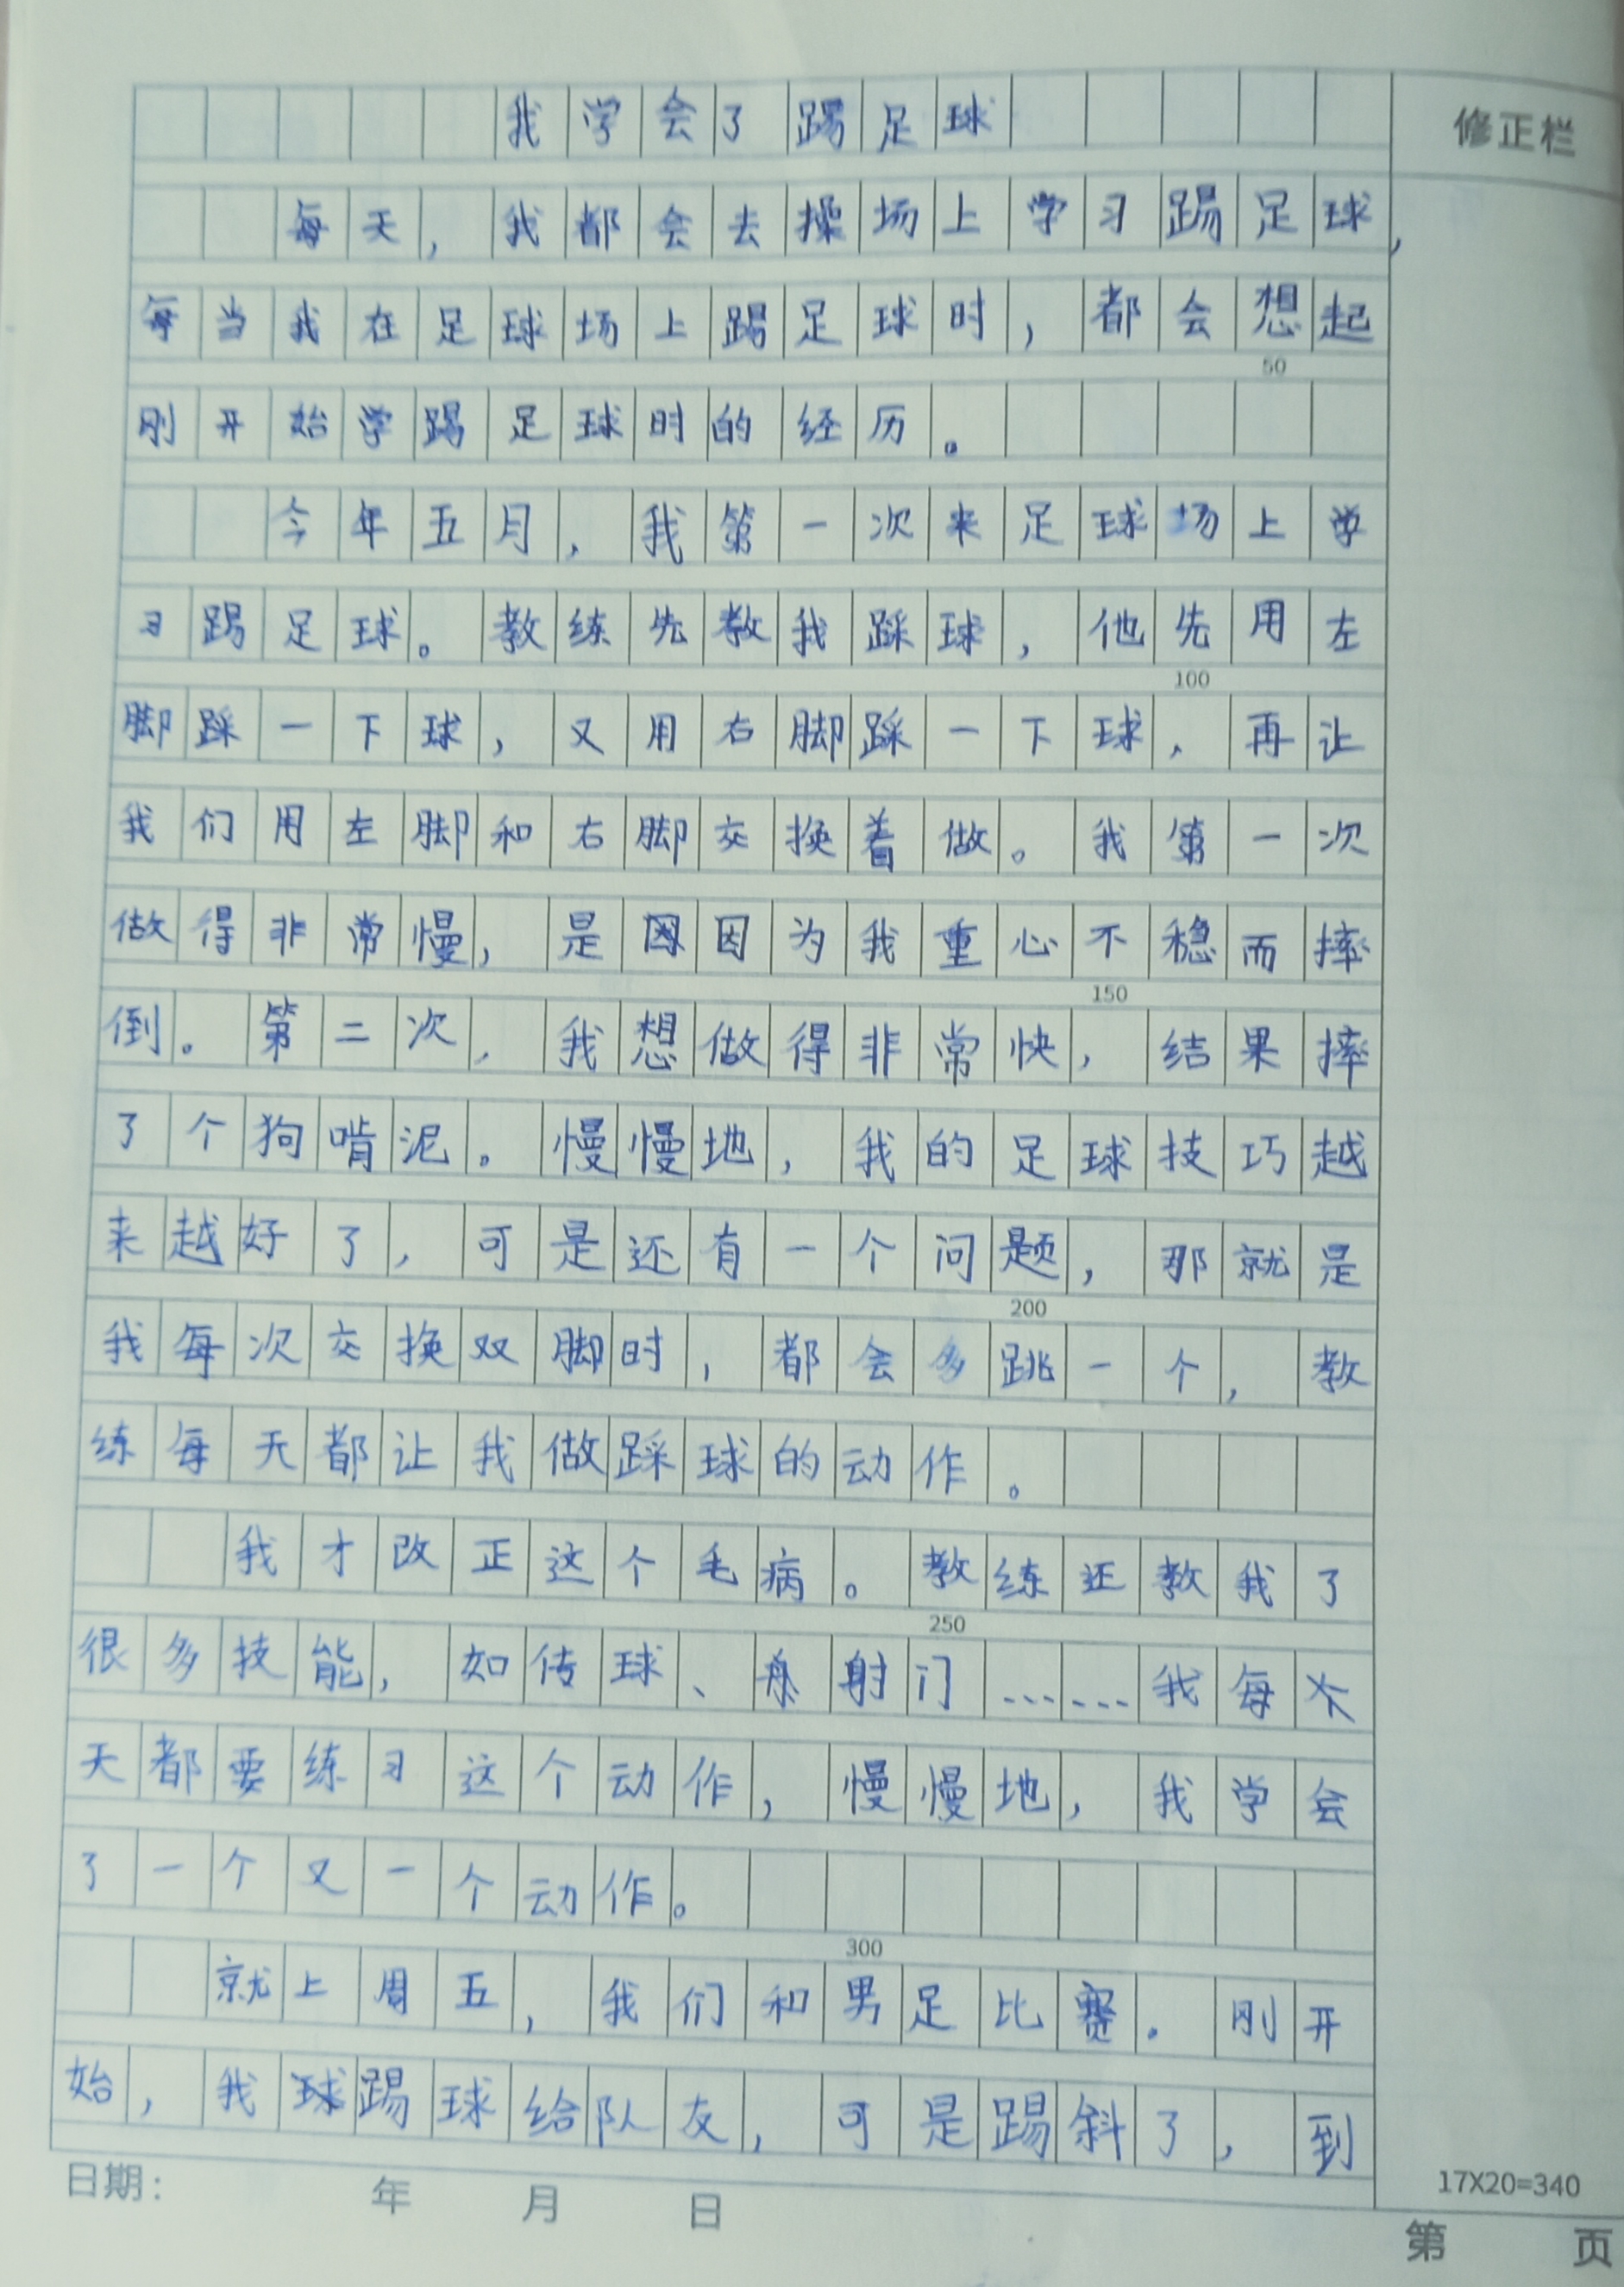 我学会了踢足球
修正栏
每天，我都会去操场上学习踢足球，
每当我在足球场上踢足球时，都会想起
50
刚开始学踢足球时的经历。
今年五月，我第一次来足球场上学
习踢足球。教练先教我踩球，他先用左
100
脚踩一下球，又用右脚踩一下球，再让
我们用左脚和右脚交换着做。我第一次
做得非常慢，是因为我重心不稳而摔
150
倒。第二次，我想做得非常快，结果摔
了个狗啃泥。慢慢地，我的足球技巧越
来越好了，可是还有一个问题，那就是
200
我每次交换双脚时，都会多跳一个，教
练每天都让我做踩球的动作。
我才改正这个毛病。教练还教我了
250
很多技能，如传球、射门……我每
天都要练习这个动作，慢慢地，我学会
了一个又一个动作。
300
就上周五，我们和男足比赛。刚开
始，我球踢球给队友，可是踢斜了，到
17X20=340
日期： 年 月 日
第 页